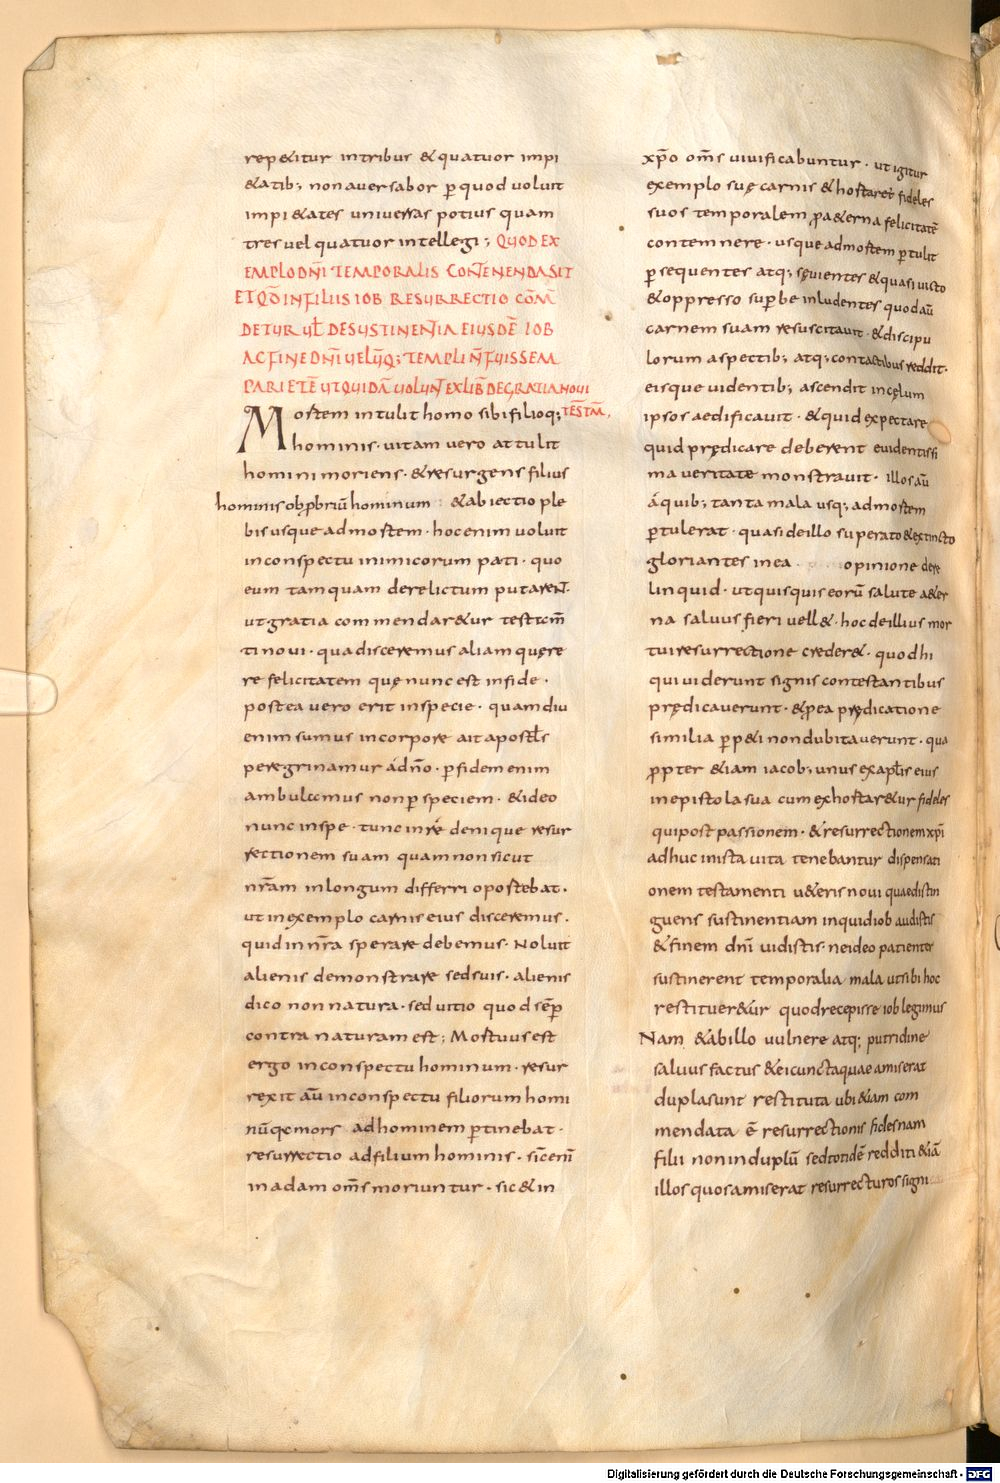 rep&itur intribus & quatuor impi
&atib; non aversabor ꝑ quod voluit
impi&ates universas potius quam
tres vel quatuor intellegi; QUOD EX
EMPLO DN̅I TEMPORALIS CONTENENDA SIT
ET QD̅ IN FILIIS IOB RESURRECTIO COM̅
DETUR UL̅ DE SUSTINENTIA EIUSDE̅ IOB
AC FINE DN̅I UELIQ; TEMPLI N̅ FUISSE M
PARIETE̅ UT QUIDA̅ UOLUNT EX LIB̅ DE GRATIA NOUI
TESTAM̅.
Mortem intulit homo sibi filioq;
hominis. vitam vero attulit
homini moriens. & resurgens filius
hominis ob ꝓbriu̅ hominum & abiectio ple
bis usque ad mortem. hoc enim voluit
in conspectu inimicorum pati. quo
eum tamquam derelictum putarent.
ut gratia commendar&ur testam̅
ti novi. qua disceremus aliam quęre
re felicitatem quę nunc est in fide.
postea vero erit in specie. quamdiu
enim sumus in corpore ait apostl̅s
peregrinamur a dn̅o. ꝑ fidem enim
ambulamus non ꝑ speciem. & ideo
nunc in spe. tunc in re denique resur
rectionem suam quam non sicut
nr̅am in longum differri oportebat.
ut in exemplo carnis eius disceremus.
quid in nr̅a sperare debemus. Noluit
alienis demonstrare sed suis. alienis
dico non natura. sed vitio quod se̅ꝑ
contra naturam est; Mortuus est
ergo in conspectu hominum. resur
rexit au̅ in conspectu filiorum homi
nu̅ qꝫ mors ad hominem ꝑtinebat.
resurrectio ad filium hominis. sic eni̅
in adam om̅s moriuntur. sic & in
xp̅o om̅s vivificabuntur. ut igitur
exemplo suę carnis & hortar& fideles
suos temporalem ꝓ a&erna felicitate̅
contemnere. usque ad mortem ꝑtulit
ꝑsequentes atq; sęvientes & quasi victo
& oppresso suꝑbe inludentes quod au̅
carnem suam resuscitavit. & discipu
lorum aspectib; atq; contactibus reddit.
eisque videntib; ascendit in cęlum
ipsos aedificavit. & quid expectare
quid prędicare deberent evidentissi
ma veritate monstravit. illos au̅
a quib; tanta mala usq; ad mortem
ꝑtulerat. quasi de illo superato & extincto
gloriantes in ea opinione dere
linquid. ut quisquis eoru̅ salute a&er
na salvus fieri vell&. hoc de illius mor
tui resurrectione creder&. quod hi
qui viderunt signis contestantibus
prędicaverunt. & ꝓ ea prędicatione
similia ꝑp&i non dubitaverunt. qua
ꝓpter &iam iacob; unus ex apl̅is eius
in epistola sua cum exhortar&ur fideles
qui post passionem. & resurrectionem xp̅i
adhuc in ista vita tenebantur dispensati
onem testamenti v&eris novi quae distin
guens sustinentiam inquid iob audistis
& finem dn̅i vidistis. ne ideo patienter
sustinerent temporalia mala ut sibi hoc
restituer&ur quod recepisse iob legimus
Nam & ab illo vulnere atq; putridine
salvus factus & ei cuncta quae amiserat
dupla sunt restituta ubi &iam com
mendata e̅ resurrectionis fides nam
filii non in duplu̅ sed totide̅ redditi &ia̅
illos quos amiserat resurrecturos signi
Digitalisierung gefördert durch die Deutsche Forschungsgemeinschaft - DFG